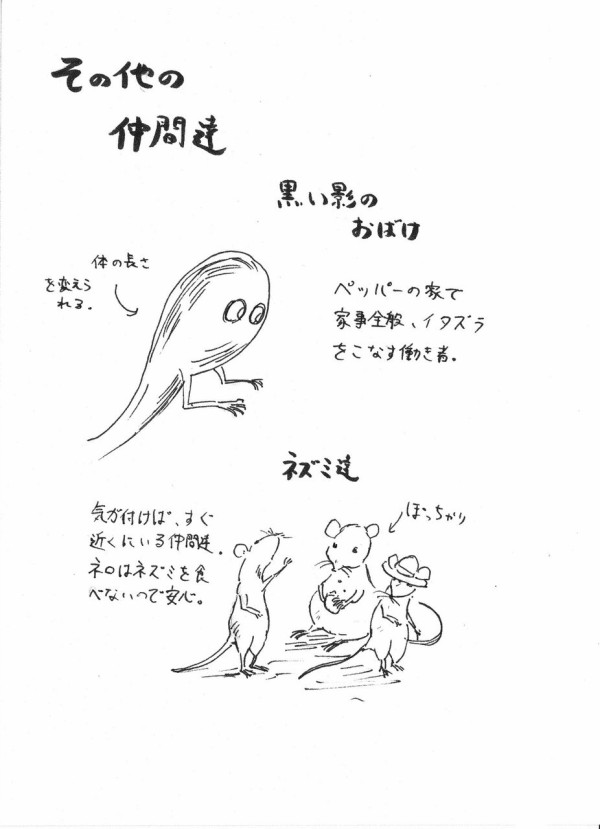 その他の
仲間達
黒い影の
おばけ
体の長さ
を変えら
れる。
ペッパーの家で
家事全般、イタズラ
をこなす働き者。
ネズミ達
気が付けば、すぐ
近くにいる仲間達。
ネロはネズミを食
べないので安心。
ぽっちゃり